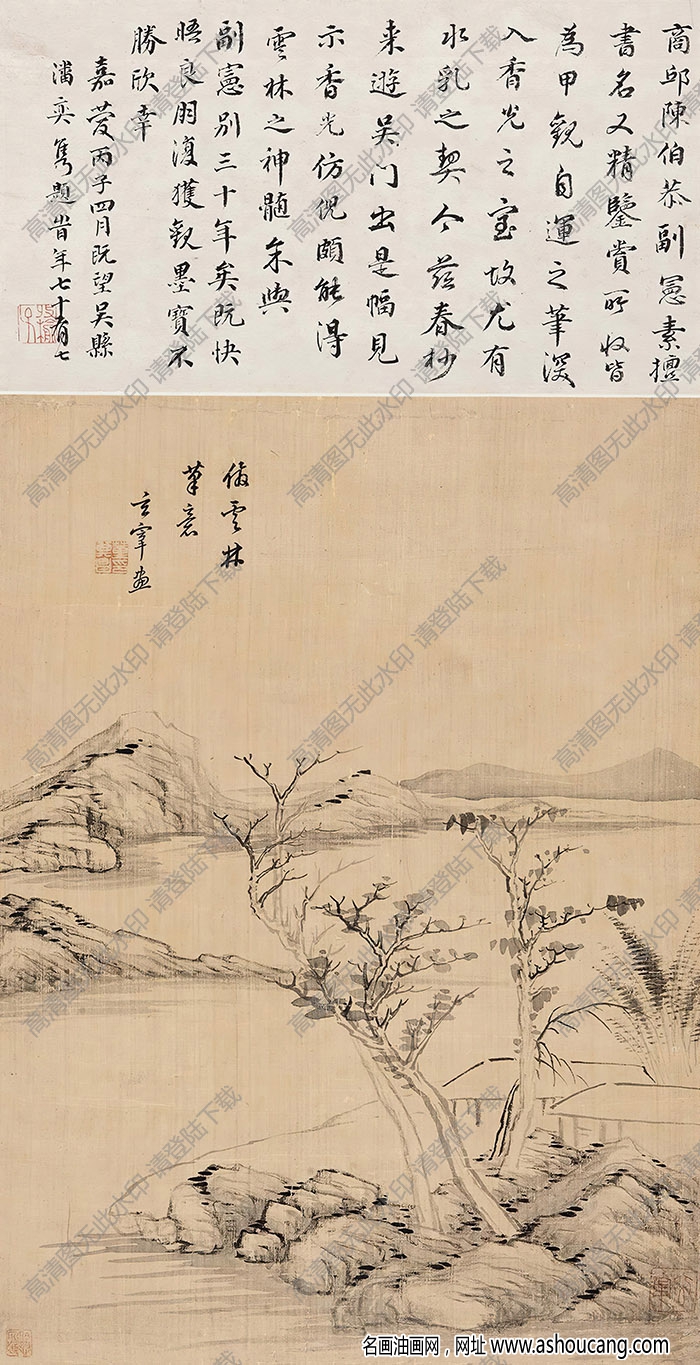 商邱陳伯恭副憲素擅
書名又精鑒賞所收皆
為甲觀自運之筆深
入香光之室故尤有
水乳之契今茲春杪
来遊吳门出是幅見
示香光仿倪頗能得
雲林之神髓余與
副憲别三十年矣既快
晤良朋復獲觀墨寶不
勝欣幸
嘉慶丙子四月既望吳縣
潘奕雋題時年七十有七
倣雲林
筆意
玄宰畫
高清图无此水印 请登陆下载
名画油画网，网址 www.ashoucang.com